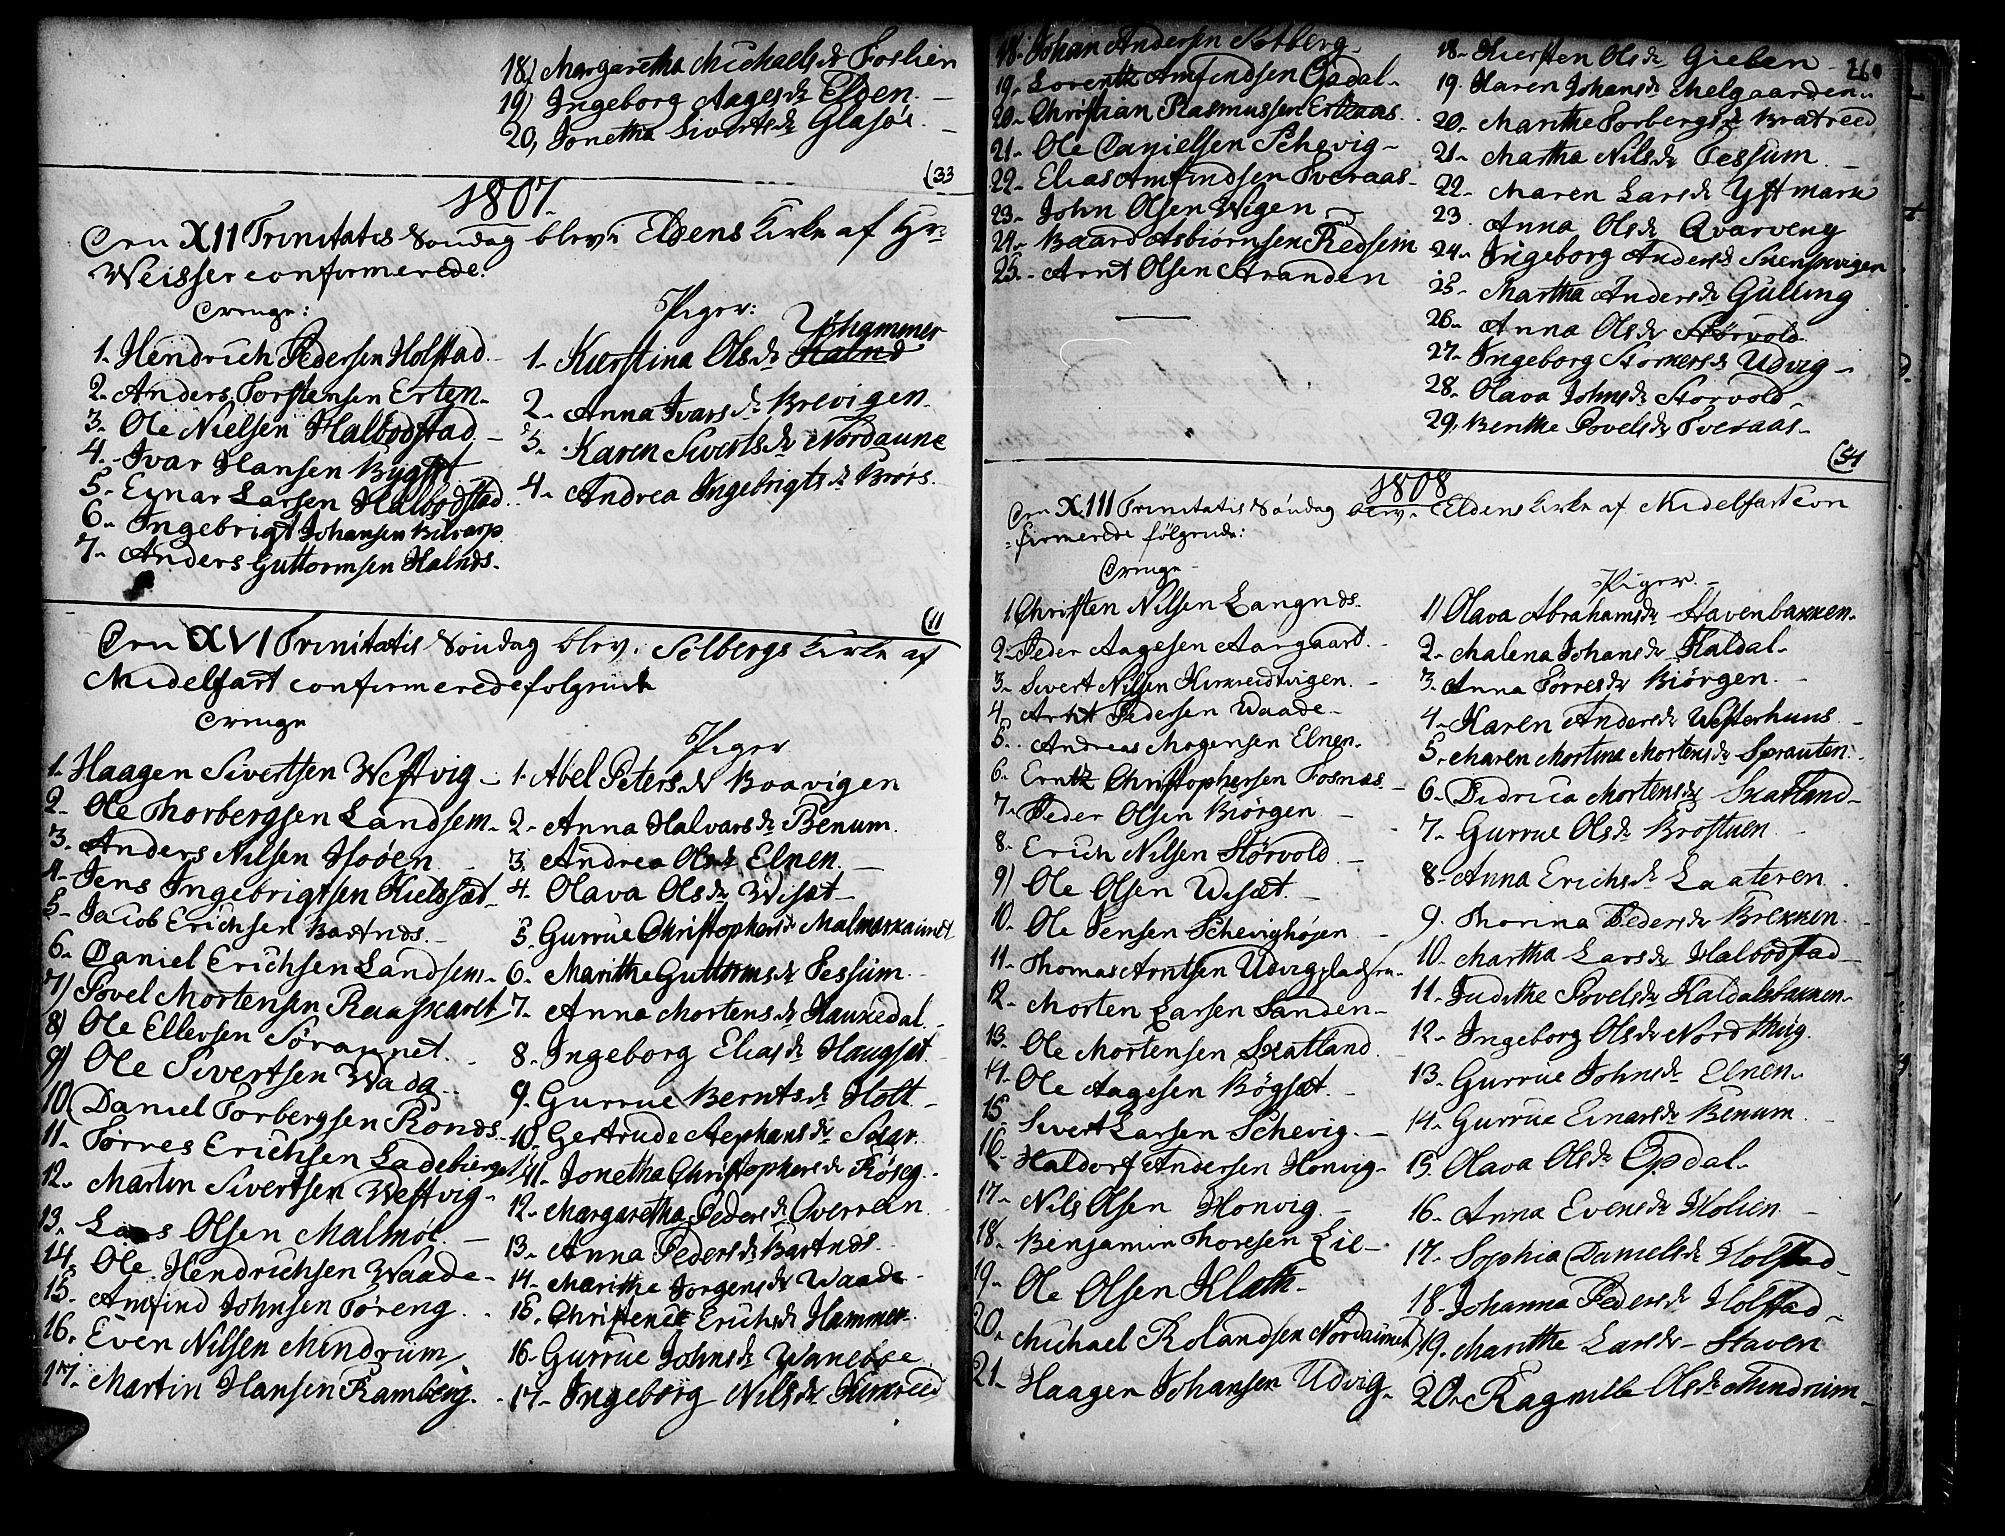 18) Margaretha Michaelsdr Foslien
19) Ingeborg Aagesdr Elden
20, Jonetha Sivertsdr Glasøe
(33
1807.
Den XII Trinitatis Søndag blev i Eldens Kirke af Hr:
Weisser confirmerede:
Drenge:
1. Hendrich Pedersen Holstad
2. Anders Torstensen Erten
3. Ole Nielsen Halbodstad
4. Ivar Hansen Bygst
5. Eynar Larsen Halbodstad
6. Ingebrigt Johansen
7. Anders Guttormsen Halnds.
Piger:
1. Kierstina Olsdr Halnd Yshammer
2. Anna Ivarsdr Brevigen
3. Karen Sivertsdr Nordaune
4. Andrea Ingebrigtsdr Brørs.
(11
Den XVI Trinitatis Søndag blev i Selbergs Kirke af
Midelfart confirmerede følgende
Drenge
1. Haagen Sivertsen Westvig
2. Ole Thorbergsen Landsem
3. Anders Nilsen Hoøen
4. Jens Ingebrigtsen Kielsset
5. Jacob Erichsen Bartnds.
6. Daniel Erichsen Landsem
7) Povel Mortensen Raaskarlt
8) Ole Ellevsen Søraunet
9) Ole Sivertsen Wada
10) Daniel Torbergsen Ronds
11. Torres Erichsen Ladebierget
12. Martin Sivertsen Westvig
13. Lars Olsen Malmøe
14. Ole Hendrichsen Waade
15. Amfind Johnsen Føreng
16. Even Nilsen Mendrum
17. Martin Hansen Ramberg
Piger
1. Abel Petersdr Boavigen
2. Anna Halvarsdr Benum
3. Andrea Olsdr Elnen
4. Olava Olsdr Wisæt
5. Gurrue Christophersdr
6. Marithe Guttormsdr Tessum
7. Anna Mortensdr Haukedal
8. Ingeborg Eliasdr Haugsæt
9. Gurrue Berntsdr Holt
10. Gertrude Stephansdr
11. Jonetha Christophersdr Røseg
12. Margaretha Pedersdr Overrein
13. Anna Pedersdr Bartnds.
14. Marithe Jorgensdr Waade
15. Christence Erichsdr Hammer
16. Gurrue Johnsdr
17. Ingeborg Nilsdr Kirkreed
26.
18. Johan Andersen Solberg
19. Lorentz Amfindsen Opdal
20. Christian Rasmussen
21. Ole Danielsen Schevig
22. Elias Amfindsen Tveraas
23. John Olsen Wigen
24. Baard Asbiørnsen Redseim
25. Arnt Olsen Stranden
18. Kiersten Olsdr Gieben
19. Karen Johansdr Melgaarden
20. Marithe Torbergsdr Bratreed
21. Martha Nilsdr Tessum
22. Maren Larsdr Yftmark
23. Anna Olsdr Qvarveng
24. Ingeborg Andersdr
25. Martha Andersdr Gulling
26. Anna Olsdr Størvold
27. Ingeborg Storkersdr Udvig
28. Olava Johnsdr Storvold
29. Benthe Povelsdr Tveraas
(54
1808
Den XIII Trinitatis Søndag blev i Eldens Kirke af Midelfart con
=firmerede følgende:
Drenge
1. Christen Nilsen Langnds.
2. Peder Aagesen Aargaard
3. Sivert Nilsen Kirkreidtvigen
4. Arnt Pedersen Waade
5. Andreas Mogensen Elnen
6. Erntz Christophersen Fosnæs
7. Peder Olsen Biørgen
8. Erich Nilsen Størvold
9) Ole Olsen Wisæt
10. Ole Jensen Schevighøjen
11. Thomas Arntsen
12. Morten Larsen Sanden
13. Ole Mortensen Skatland
14. Ole Aagesen Bøgsæt
15. Sivert Larsen Schevig
16. Haldorf Andersen Honvig
17. Nils Olsen Honvig
18. Benjamin Thoresen Lie
19. Ole Olsen Kløth
20. Michael Rolandsen Nordaunet
21. Haagen Johansen Udvig
Piger
1) Olava Abrahamsdr Stavenbakken
2. Malena Johansdr Kaldal
3. Anna Torresdr Biørgen
4. Karen Andersdr Westerhuus
5. Maren Mortina Mortensdr Sprauten
6. Didrica Mortensdr Skatland
7. Gurrue Olsdr Brostuen
8. Anna Erichsdr Laateren
9. Thorina Pedersdr Brekken
10. Martha Larsdr Halbodstad
11. Judithe Povelsdr Kaldalsbakken
12. Ingeborg Olsdr Nordthug
13. Gurrue Johnsdr Elnen
14. Gurrue Einarsdr Benum
15. Olava Olsdr Opdal
16. Anna Evensdr Holien
17. Sophia Danielsdr Holstad
18. Johanna Pedersdr Holstad
19. Marithe Larsdr Staven
20. Ragnille Olsdr Mindrum